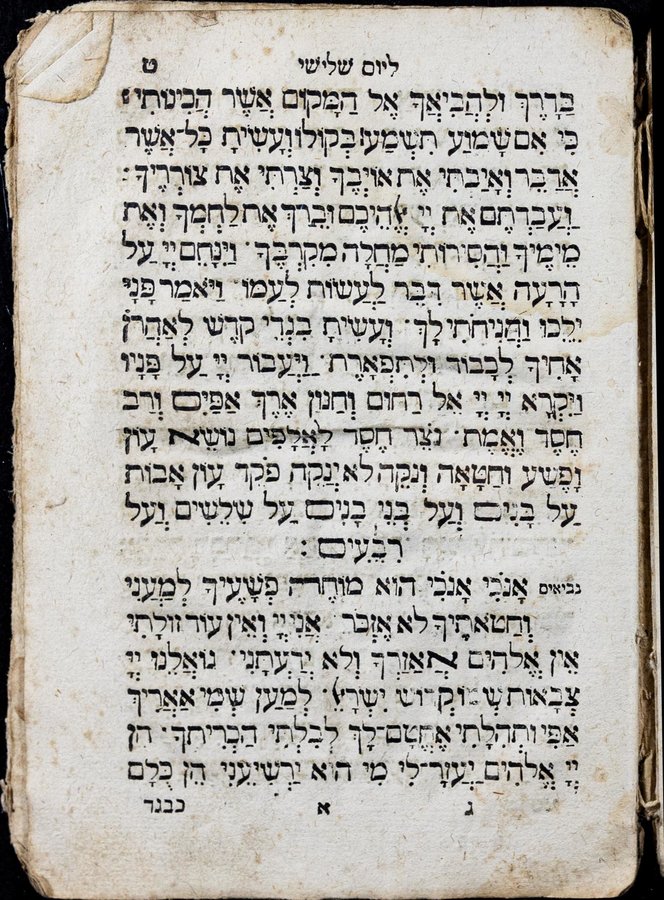 ליום שלישי ט
בַּדָּרֶךְ וְלַהֲבִיאֲךָ אֶל הַמָּקוֹם אֲשֶׁר הֲכִינוֹתִי׃
כִּי אִם שָׁמוֹעַ תִּשְׁמַע בְּקוֹלוֹ וְעָשִׂיתָ כָּל־אֲשֶׁר
אֲדַבֵּר וְאָיַבְתִּי אֶת אוֹיְבֶיךָ וְצַרְתִּי אֶת צוֹרְרֶיךָ׃
וַעֲבַדְתֶּם אֶת יְיָ אֱלֹהֵיכֶם וּבֵרַךְ אֶת לַחְמְךָ וְאֶת
מֵימֶיךָ וַהֲסִירוֹתִי מַחֲלָה מִקִּרְבֶּךָ׃ וַיִּנָּחֶם יְיָ עַל
הָרָעָה אֲשֶׁר דִּבֶּר לַעֲשׂוֹת לְעַמּוֹ׃ וַיֹּאמַר פָּנַי
יֵלֵכוּ וַהֲנִיחֹתִי לָךְ׃ וְעָשִׂיתָ בִגְדֵי קֹדֶשׁ לְאַהֲרֹן
אָחִיךָ לְכָבוֹד וּלְתִפְאָרֶת׃ וַיַּעֲבוֹר יְיָ עַל פָּנָיו
וַיִּקְרָא יְיָ יְיָ אֵל רַחוּם וְחַנּוּן אֶרֶךְ אַפַּיִם וְרַב
חֶסֶד וֶאֱמֶת׃ נֹצֵר חֶסֶד לָאֲלָפִים נוֹשֵׂא עָוֹן
וָפֶשַׁע וְחַטָּאָה וְנַקֵּה לֹא יְנַקֶּה פֹּקֵד עֲוֹן אָבוֹת
עַל בָּנִים וְעַל בְּנֵי בָנִים עַל שִׁלֵּשִׁים וְעַל
רִבֵּעִים׃
נביאים אָנֹכִי אָנֹכִי הוּא מוֹחֶה פְשָׁעֶיךָ לְמַעֲנִי
וְחַטֹּאתֶיךָ לֹא אֶזְכֹּר׃ אֲנִי יְיָ וְאֵין עוֹד זוּלָתִי
אֵין אֱלֹהִים אֲאַזֶּרְךָ וְלֹא יְדַעְתָּנִי׃ גּוֹאֲלֵנוּ יְיָ
צְבָאוֹת שְׁמוֹ קְדוֹשׁ יִשְׂרָאֵל׃ לְמַעַן שְׁמִי אַאֲרִיךְ
אַפִּי וּתְהִלָּתִי אֶחֱטָם־לָךְ לְבִלְתִּי הַכְרִיתֶךָ׃ הֵן
יְיָ אֱלֹהִים יַעֲזָר־לִי מִי הוּא יַרְשִׁיעֵנִי הֵן כֻּלָּם
ג א כבגד